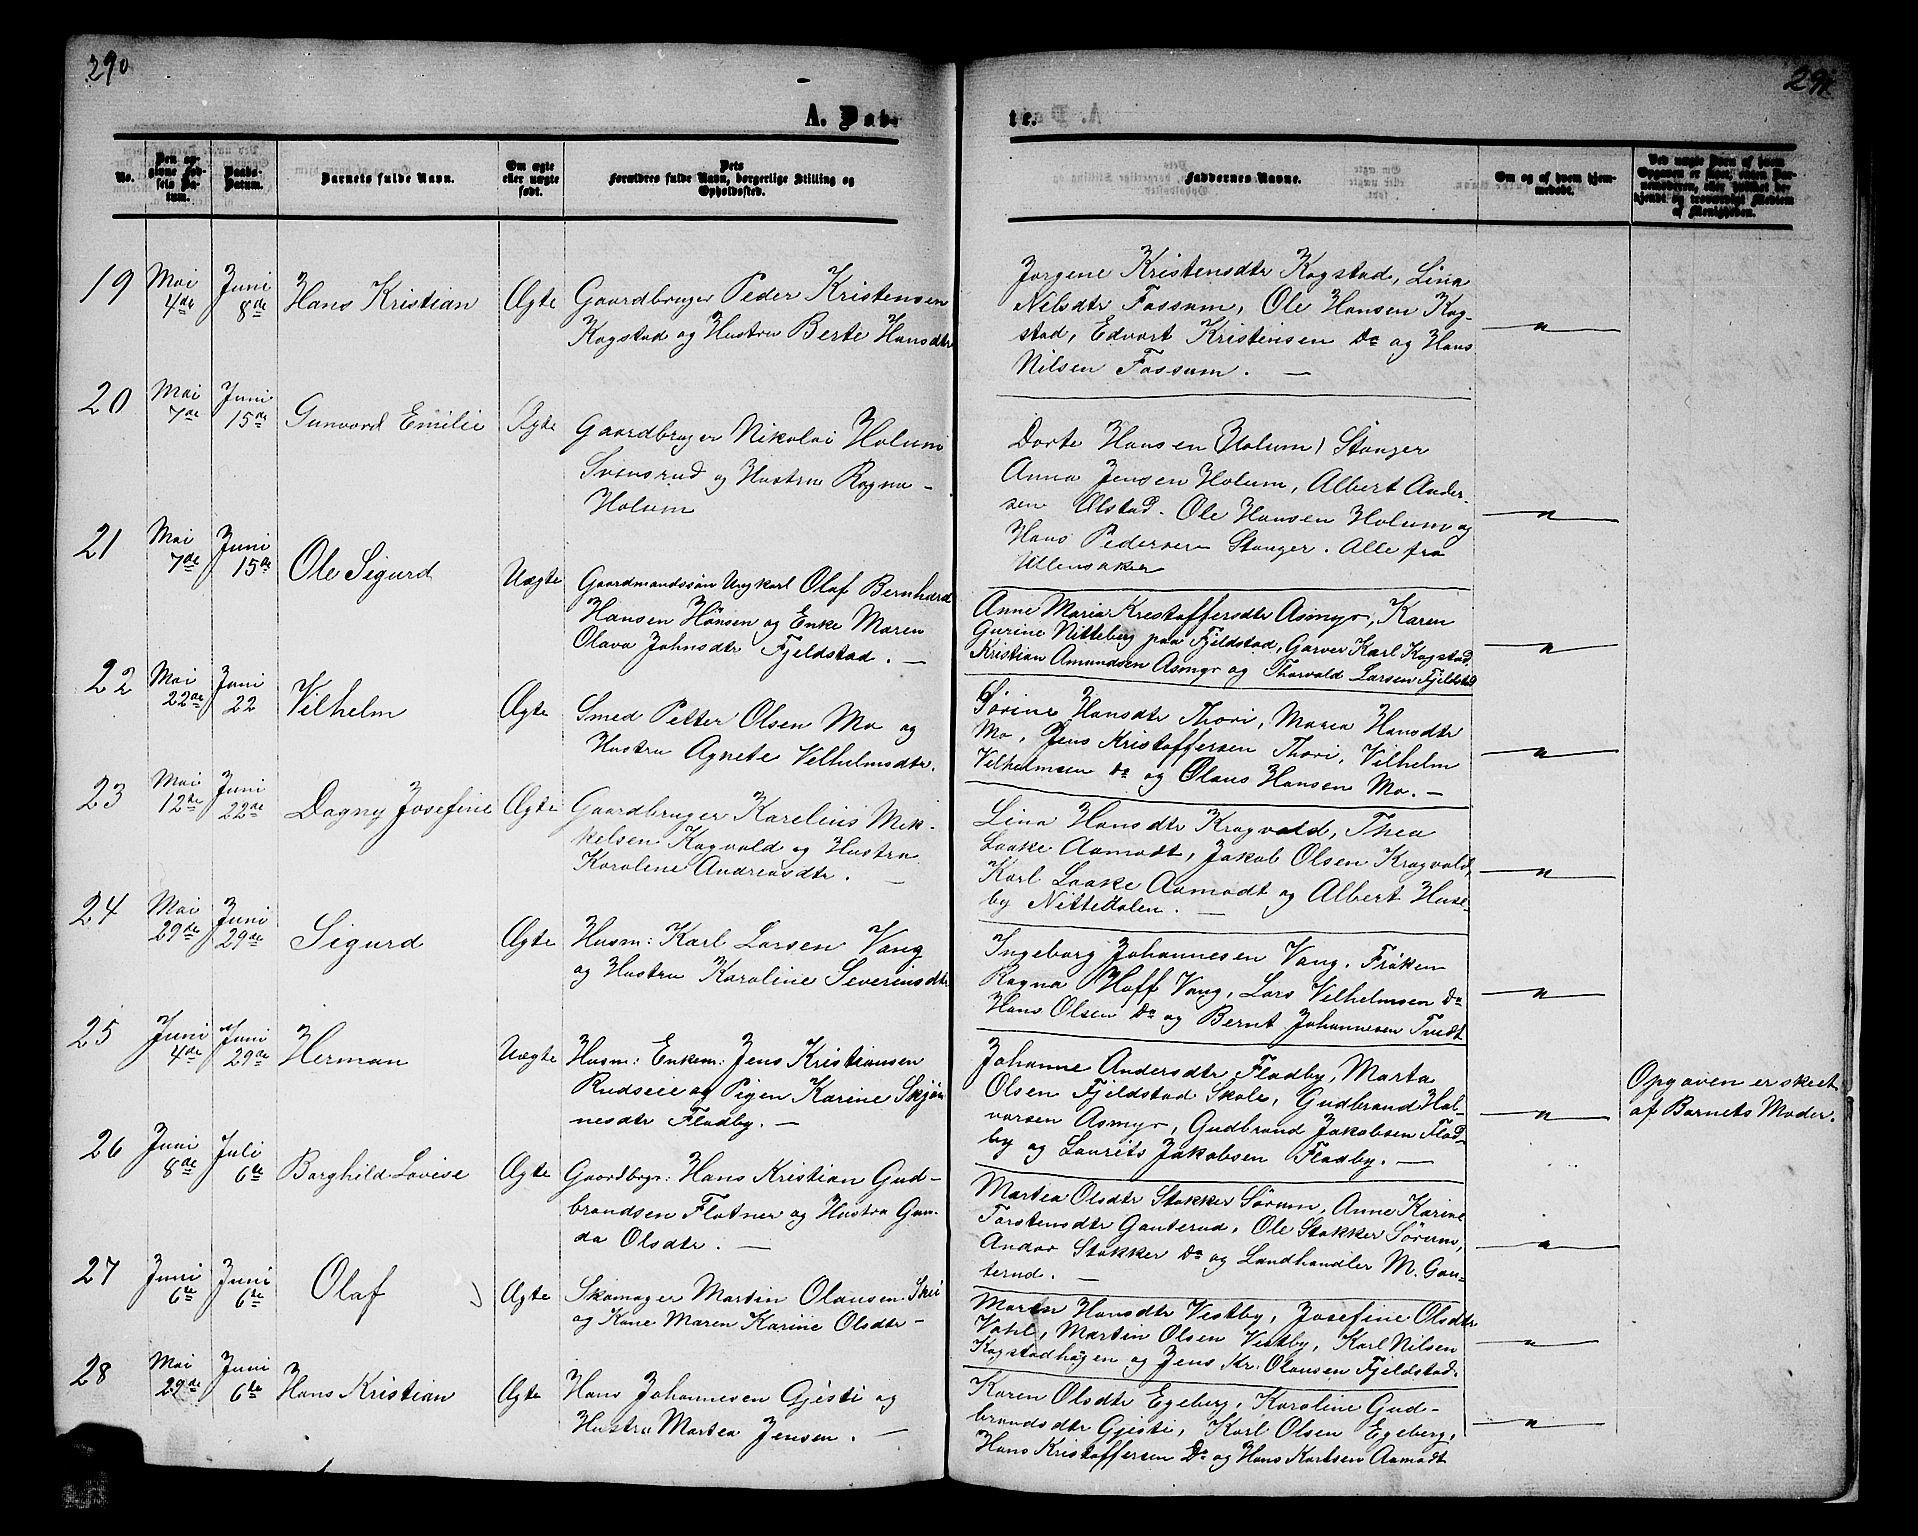 290
291
A. Døb-
te.
No.
Den op-
givne Fød-
sels Da-
tum.
Daabs-
Datum.
Barnets fulde Navn.
Om ægte
eller uægte
født.
Dets
Forældres fulde Navn, borgerlige Stilling og
Opholdssted.
Faddernes Navne.
Om og af hvem hjem-
medøbt.
Ved uægte Børn af hvem
Opgaven er skeet, enten Bar-
nemoderen, eller hvilket be-
kjendt og troværdigt Medlem
af Menigheden.
19
Mai
4de
Juni
8de
Hans Kristian
Ægte
Gaardbruger Peder Kristensen
Kogstad og Hustru Berte Hansdtr
Jørgene Kristensdtr Kogstad, Lina
Nelsdtr Fossum, Ole Hansen Kog-
stad, Edvart Kristensen Do og Hans
Nilsen Fossum. —
—"—
20
Mai
7de
Juni
15de
Gunvord Emilie
Ægte
Gaardbruger Nikolai Holum
Svensrud og Hustru Ragna —
Holum
Dorte Hansen (Holum) Stanger
Anna Jensen Holum, Albert Ander-
sen Ølstad. Ole Hansen Holum og
Hans Pedersen Stanger. Alle fra
Ullensaker
—"—
21
Mai
7de
Juni
15de
Ole Sigurd
Uægte
Gaardmandssøn Ungkarl Olaf Bernhard
Hansen Hønsen og Enke Maren
Olava Johnsdtr Fjeldstad. —
Anne Maria Krestoffersdtr Asmyr, Karen
Gurine Nitteberg paa Fjeldstad, Garver Karl Kogstad
Kristian Amundsen Asmyr og Thorvald Larsen Fjeldstad
—"—
22
Mai
22de
Juni
22
Vilhelm
Ægte
Smed Petter Olsen Mo og
Hustru Agnete Velhelmsdtr.
Sørine Hansdtr Thori, Maria Hansdtr
Mo, Jens Kristoffersen Thori, Vilhelm
Vilhelmsen Do og Olaus Hansen Mo. —
—"—
23
Mai
12te
Juni
22de
Dagny Josefine
Ægte
Gaardbruger Karelius Mik-
kelsen Kogvold og Hustru
Karoline Andreasdtr. —
Lina Hansdtr Kragvold, Thea
Laake Aamodt, Jakob Olsen Kragvold
Karl Laake Aamodt og Albert Huse-
by Nittedalen. —
—"—
24
Mai
29de
Juni
29de
Sigurd
Ægte
Husm: Karl Larsen Vang
og Hustru Karoline Severinsdtr
Ingeborg Johannesen Vang, Frøken
Ragna Hoff Vang, Lars Velhelmsen Do
Hans Olsen Do og Bernt Johannesen Tvedt
—"—
25
Juni
4de
Juni
29de
Herman
Uægte
Husm: Enkem: Jens Kristiansen
Rudseie og Pigen Karine Skjøn-
nesdtr Fladby. —
Johanne Andersdtr Fladby, Marta
Olsen Fjeldstad Skole, Gudbrand Hal-
vorsen Asmyr, Gudbrand Jakobsen Flad-
by og Laurits Jakobsen Fladby. —
—"—
Opgaven er skeet
af Barnets Moder.
26
Juni
8de
Juli
6te
Borghild Lovise
Ægte
Gaardbgr: Hans Kristian Gud-
brandsen Flatner og Hustru Gun-
da Olsdtr. —
Martea Olsdtr Stokker Sørum, Anne Karine
Torstensdtr Gauterud, Ole Stokker Sørum,
Andor Stokker Do og Landhandler M. Gau-
terud. —
—"—
27
Juni
6te
Juni
6te
Olaf
Ægte
Skomager Martin Olausen Skei
og Kone Maren Karine Olsdtr —
Marte Hansdtr Vestby, Josefine Olsdtr
Vahl, Martin Olsen Vestby, Karl Nilsen
Kogstadhagen og Jens Kr. Olausen Fjeldstad.
—"—
28
Mai
29de
Juni
6te
Hans Kristian
Ægte
Hans Johannesen Gjesti og
Hustru Martea Jensen. —
Karen Olsdtr Egeberg, Karoline Gud-
brandsdtr Gjesti, Karl Olsen Egeberg,
Hans Kristoffersen Do og Hans Karlsen Aamodt
—"—